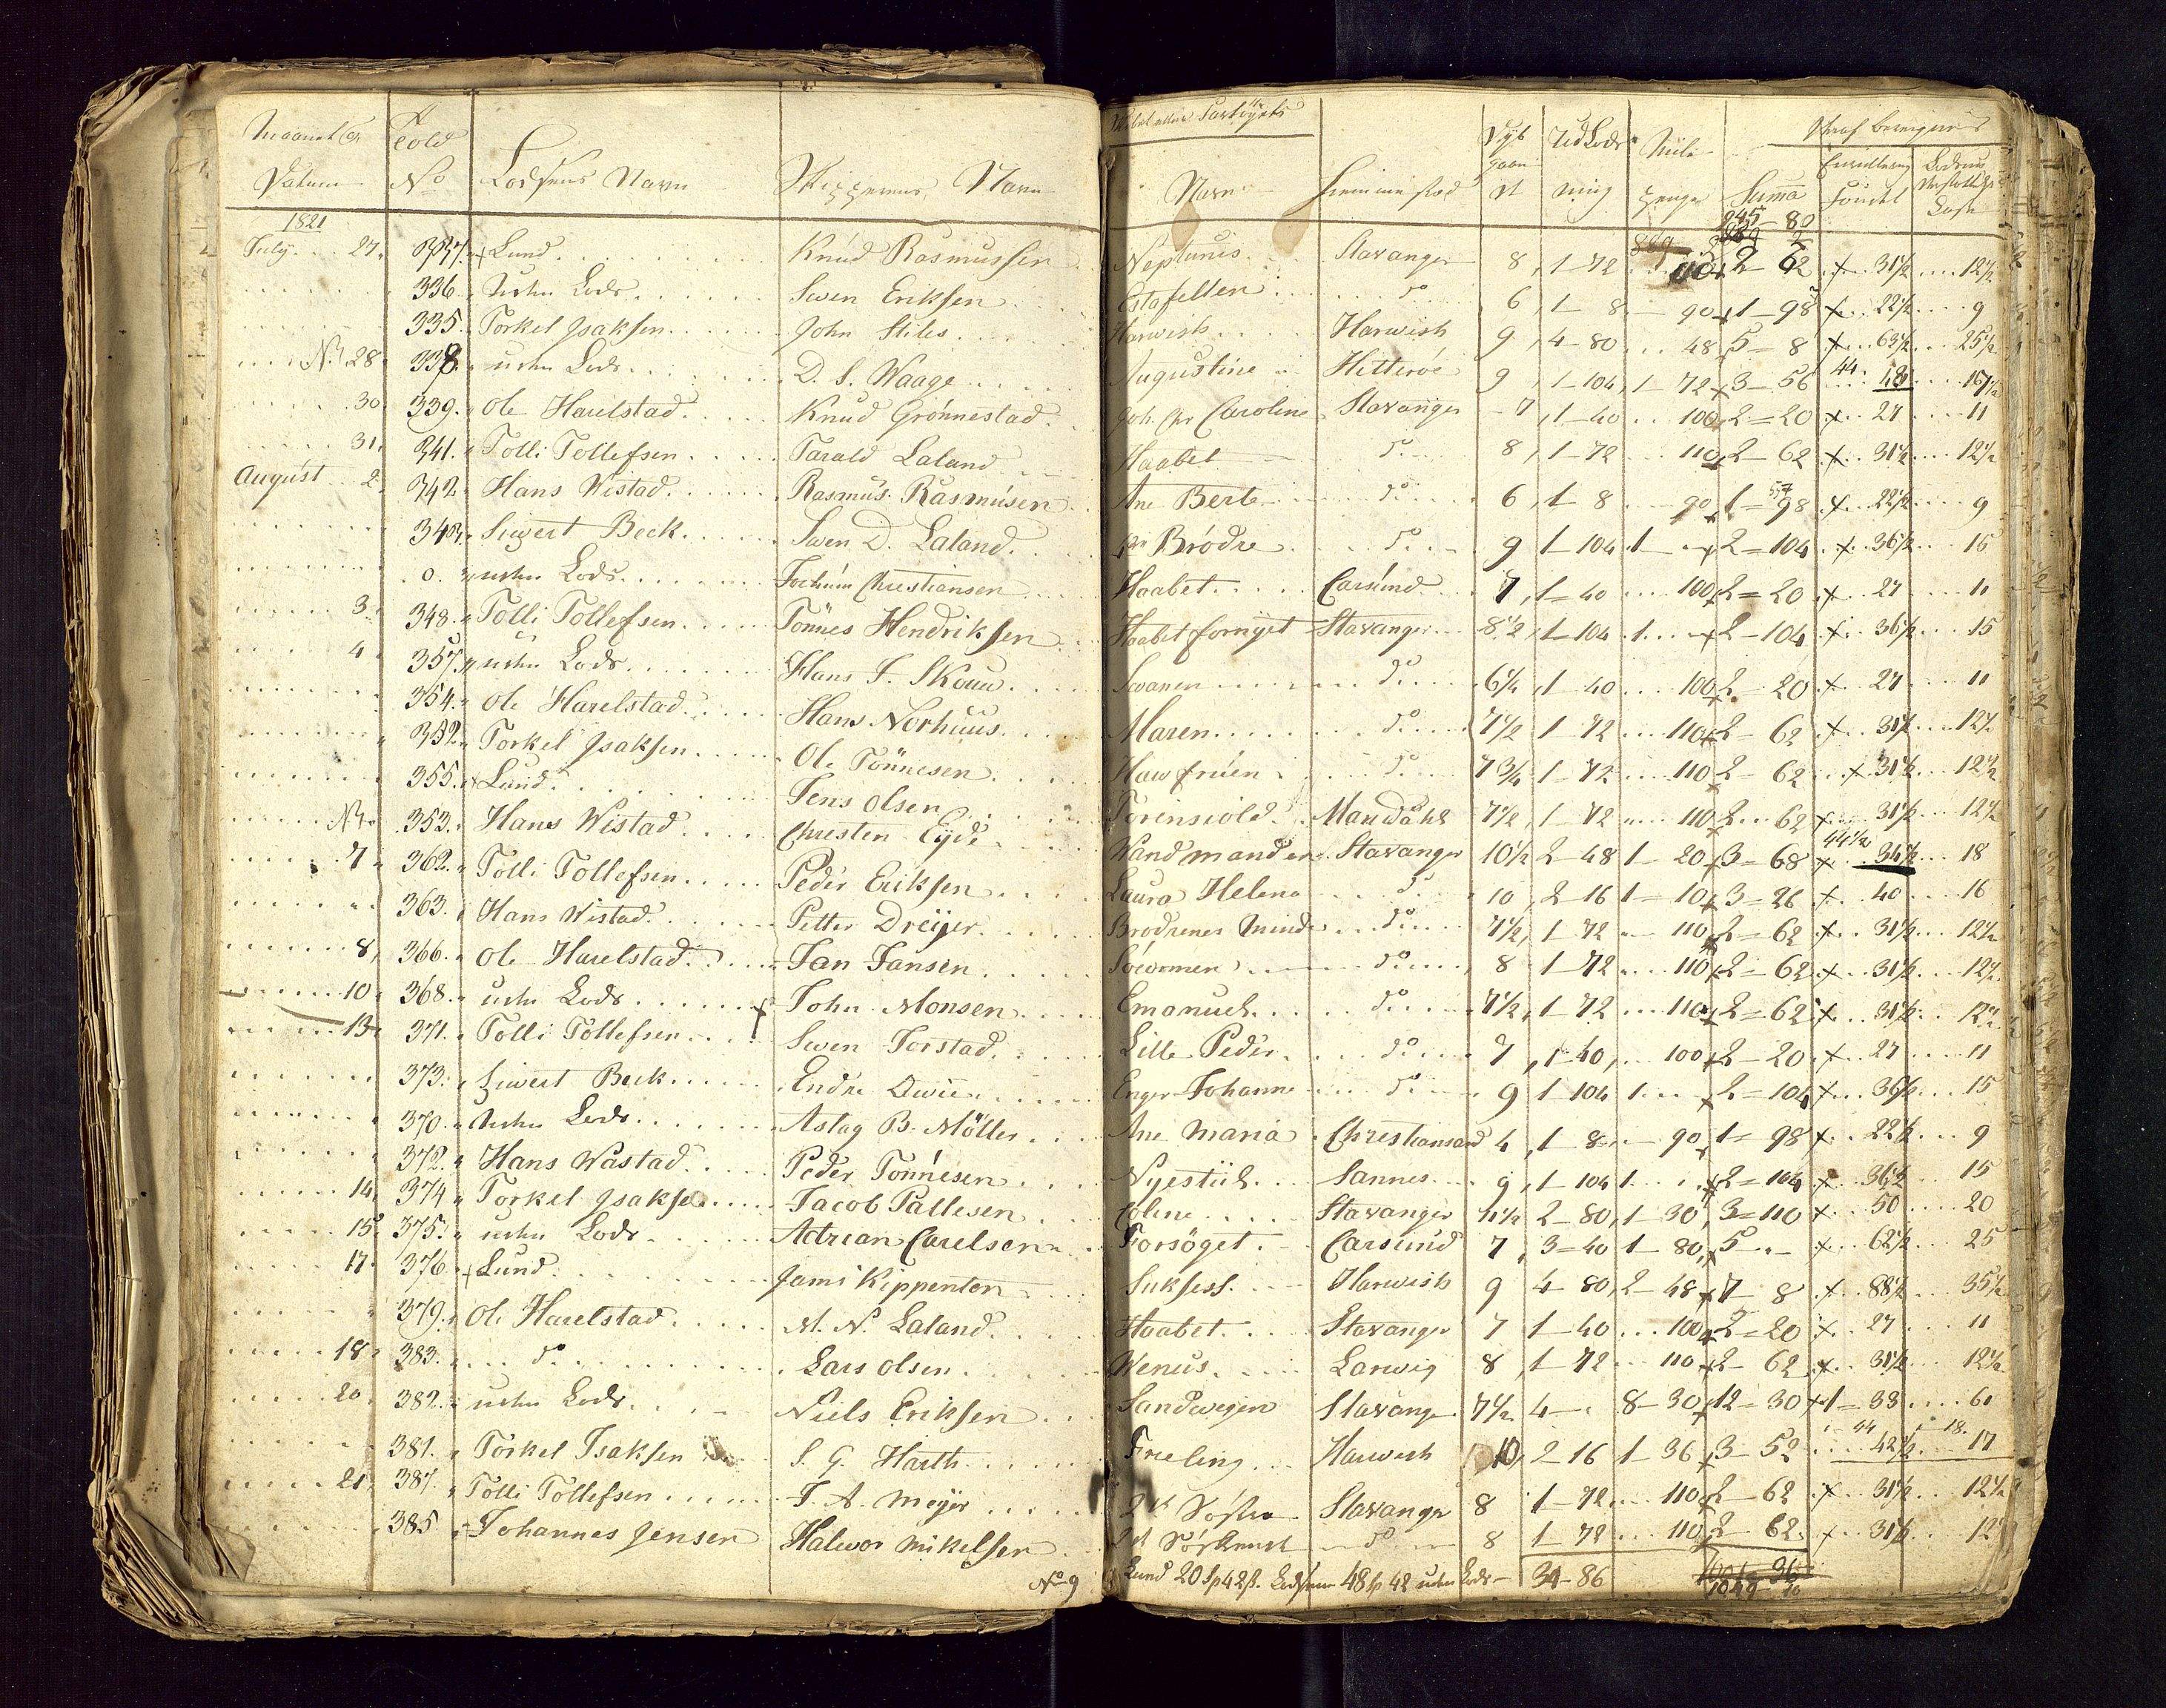 Maanet & Told Lodsens Navn Skippernes Navn
Datum No
1821
July 27. 337. Lund Knud Rasmussen
336 uden Lods Swen Eriksen
335. Torkel Isaksen John Stiles
28. 338. uden Lods D. S. Waage
30. 339. Ole Harelstad Knud Grönnestad
31. 341. Tolli Tollefsen Tarald Laland
August 2. 342. Hans Wistad Rasmus Rasmusen
343. Siwert Beck Swen D. Laland
0. uden Lods Jochum Christiansen
3. 348. Tolli Tollefsen Tönnes Hendriksen
4. 357. uden Lods Hans J. Skouw
354. Ole Harelstad Hans Norhuus
352. Torkel Isaksen Ole Tönnesen
355. Lund Jens Olsen
353. Hans Wistad Christen Eyde
7. 362. Tolli Tollefsen Peder Eriksen
363. Hans Wistad Petter Dreyer
8. 366. Ole Harelstad Jan Jansen
10. 368. uden Lods John Monsen
13. 371. Tolli Tollefsen Swen Torstad
373. Siwert Beck Endre Owien
370. uden Lods Aslag B. Möller
372. Hans Wastad Peder Tönnesen
14. 374. Torkel Isaksen Jacob Pallesen
15. 375. uden Lods Adrian Carelsen
17. 376. Lund Jams Kippenton
379. Ole Harelstad M. N. Laland
18. 383. do Lars Olsen
20. 382. uden Lods Niels Eriksen
381. Torkel Isaksen S. G. Harth
21. 387. Tolli Tollefsen J. A. Meyer
385. Johannes Jensen Halwor Mikelsen
No 9
Skibets eller Fartöyets Dyb UdLods Mile Heraf beregnes
Navn Hiemmestæd ning penge Suma Fondet
945 - 80
Neptunus Stavanger 8 1-72 110 2-62 31½ 12½
Estafetten do 6 1-8 90 1-98 22½ 9
Harwish Harwish 9 4-80 48 5-8 63½ 25½
Augustine Hitteröe 9 1-104 1-72 3-56 44 48 17½
Caroline Stavanger 7 1-40 100 2-20 27 11
Haabet do 8 1-72 110 2-62 31½ 12½
Ane Berte do 6 1-8 90 1-98 22½ 9
Brödre do 9 1-104 1 2-104 36½ 15
Haabet Carsund 7 1-40 100 2-20 27 11
Haabet fornyet Stavanger 8½ 1-104 1 2-104 36½ 15
Swanen do 6¼ 1-40 100 2-20 27 11
Maren do 7½ 1-72 110 2-62 31½ 12½
Hawfruen do 7¾ 1-72 110 2-62 31½ 12½
Torinsiold Mandahl 7½ 1-72 110 2-62 31½ 12½
Wandmanden Stavanger 10½ 2-48 1-20 3-68 44½ 34½ 18
Laura Helena do 10 2-16 1-10 3-26 40 16
Brödrenes Minde do 7½ 1-72 110 2-62 31½ 12½
Söeblomsten do 8 1-72 110 2-62 31½ 12½
Emanuel do 7½ 1-72 110 2-62 31½ 12½
Lille Peder do 7 1-40 100 2-20 27 11
Enger Johanne do 9 1-104 1 2-104 36½ 15
Ane Maria Christiansand 4 1-8 90 1-98 22½ 9
Nyestük Sannes 9 1-104 1 2-104 36½ 15
Coline Stavanger 11½ 2-80 1-30 3-110 50 20
Forsöget Carsund 7 3-40 1-80 5 62½ 25
Suksess Harwish 9 4-80 2-48 7-8 88½ 35½
Haabet Stavanger 7 1-40 100 2-20 27 11
Wenus Larwig 8 1-72 110 2-62 31½ 12½
Sandwigen Stavanger 7½ 4 8-30 12-30 1-33 61
Freeling Harwish 10 2-16 1-36 3-52 44 42½ 18 17
Söstre Stavanger 8 1-72 110 2-62 31½ 12½
do 8 1-72 110 2-62 31½ 12½
Lund 20 sp 42 s. 48 sp 42 uden Lods 34-86